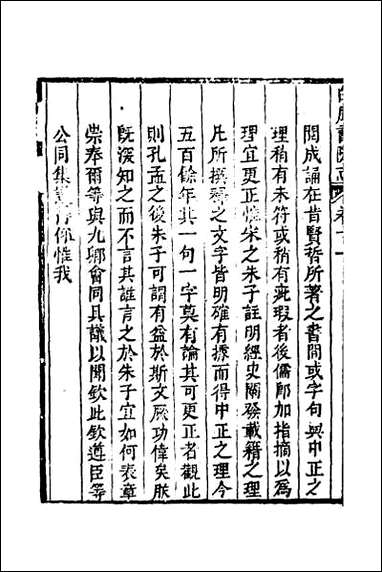 白鹿書院志 卷十一
閱成誦在昔賢哲所著之書間或字句與中正之
理稍有未符或稍有疵瑕者後儒即加指摘以爲
理宜更正惟宋之朱子註明經史闡發載籍之理
凡所撰釋之文字皆明確有據而得中正之理今
五百餘年其一句一字莫有論其可更正者觀此
則孔孟之後朱子可謂有益於斯文厥功偉矣朕
既深知之而不言其誰言之於朱子宜如何表章
崇奉爾等與九卿會同具議以聞欽此欽遵臣等
公同集惟我